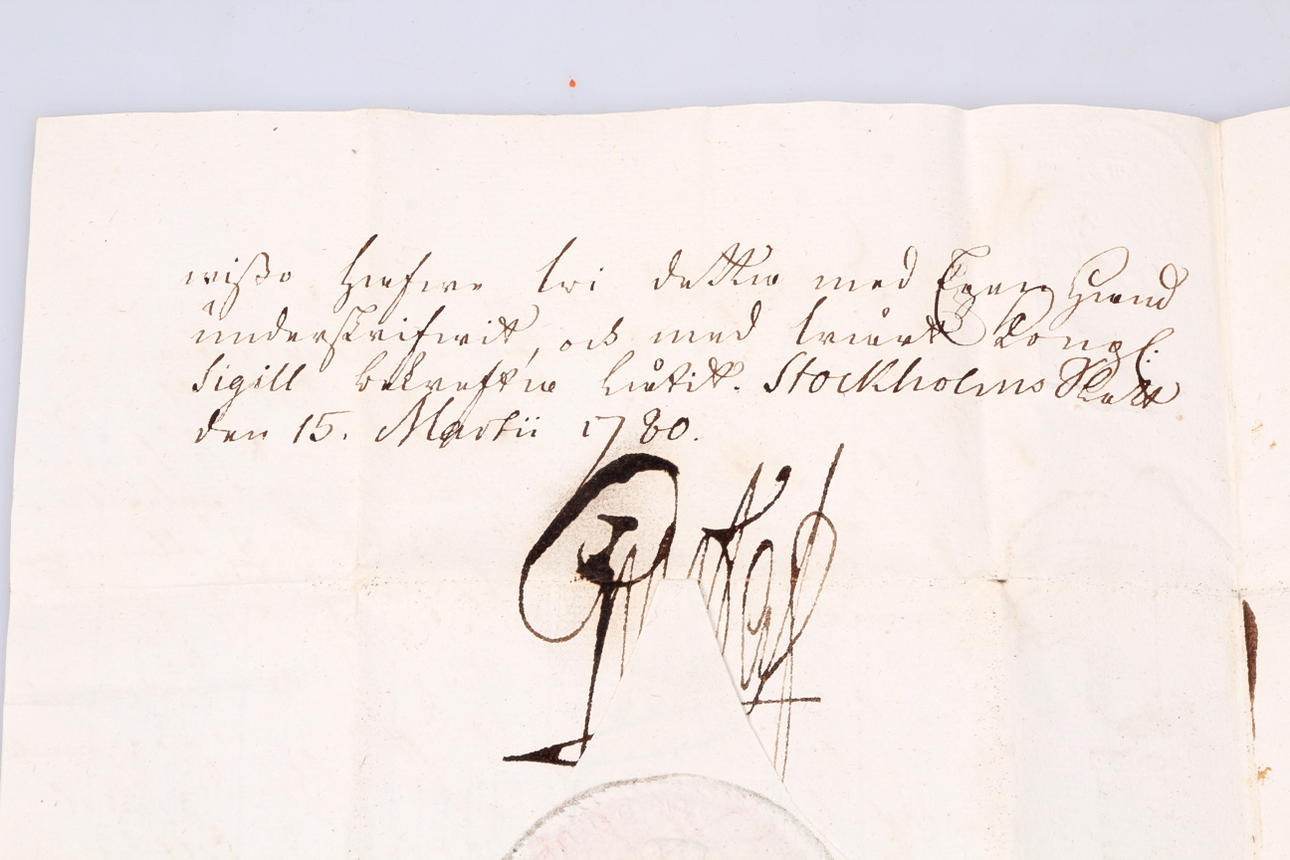 wißo hafwe wi detta med Egen Hand
underskrifwit, och med wårt Kongl:
Sigill bekrefta låtit. Stockholms Slott
den 15. Martii 1780.
Gustaf